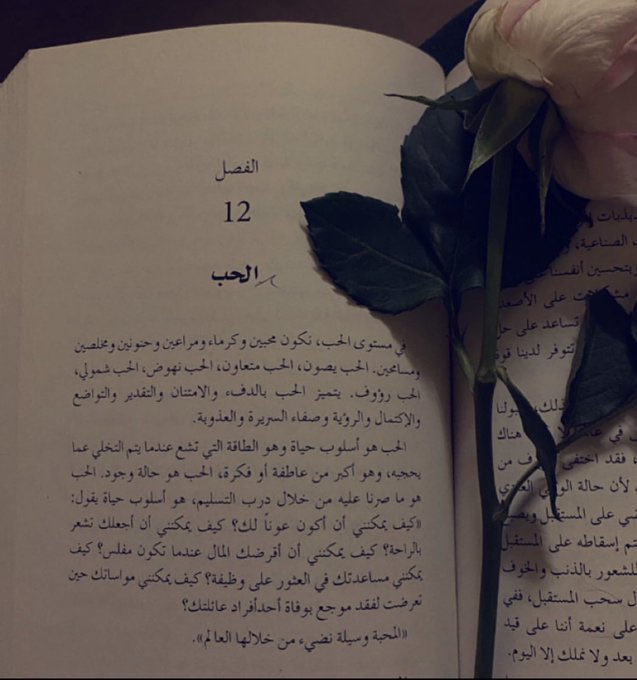 الفصل
12
الحب
في مستوى الحب، نكون محبين وكرماء ومراعين وحنونين ومخلصين
ومسامحين. الحب يصون، الحب متعاون، الحب نهوض، الحب شمولي،
الحب رؤوف. يتميز الحب بالدفء والامتنان والتقدير والتواضع
والإكتمال والرؤية وصفاء السريرة والعذوبة.
الحب هو أسلوب حياة وهو الطاقة التي تشع عندما يتم التخلي عما
يحجبه، وهو أكبر من عاطفة أو فكرة، الحب هو حالة وجود. الحب
هو ما صرنا عليه من خلال درب التسليم، هو أسلوب حياة يقول:
«كيف يمكنني أن أكون عونًا لك؟ كيف يمكنني أن أجعلك تشعر
بالراحة؟ كيف يمكنني أن أقرضك المال عندما تكون مفلس؟ كيف
يمكنني مساعدتك في العثور على وظيفة؟ كيف يمكنني مواساتك حين
تعرضت لفقد موجع بوفاة أحدأفراد عائلتك؟
«المحبة وسيلة نضيء من خلالها العالم».
الصناعية،
بتحسين أنفسنا
على الأصعد
تساعد على حل
تتوفر لدينا قوة
هناك
فقد اختفى من
لأن حالة
على المستقبل
يتم إسقاطه على المستقبل
للشعور بالذنب والخوف
سحب المستقبل، ففي
على نعمة أننا على قيد
بعد ولا نملك إلا اليوم.